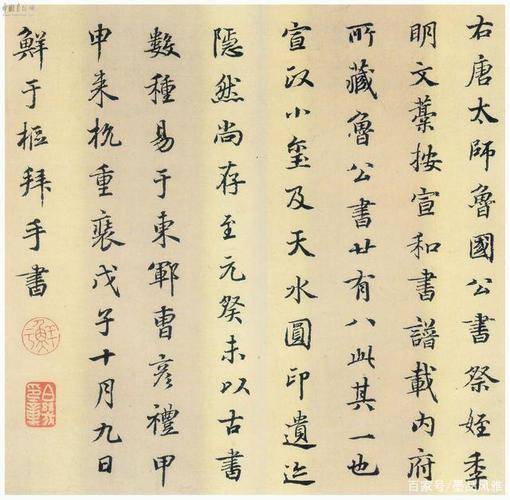 右唐太師魯國公書祭姪季
明文藁按宣和書譜載内府
所藏魯公書廿有八此其一也
宣政小璽及天水圓印遺迹
隱然尚存至元癸未以古書
數種易于東鄆曹彦禮甲
申来杭重裝戊子十月九日
鮮于樞拜手書
百家号/墨日风雅